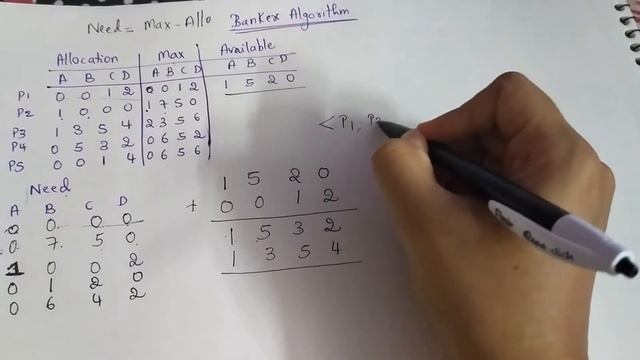 Need = Max - Allo Banker Algorithm
Allocation Max Available
A B C D A B C D A B C D
P1 0 0 1 2 0 0 1 2 1 5 2 0
P2 1 0 0 0 1 7 5 0
P3 1 3 5 4 2 3 5 6
P4 0 5 3 2 0 6 5 2
P5 0 0 1 4 0 6 5 6
< P1, P3
Need
A B C D
0 0 0 0
0 7 5 0
1 0 0 2
0 1 2 0
0 6 4 2
1 5 2 0
+ 0 0 1 2
1 5 3 2
1 3 5 4